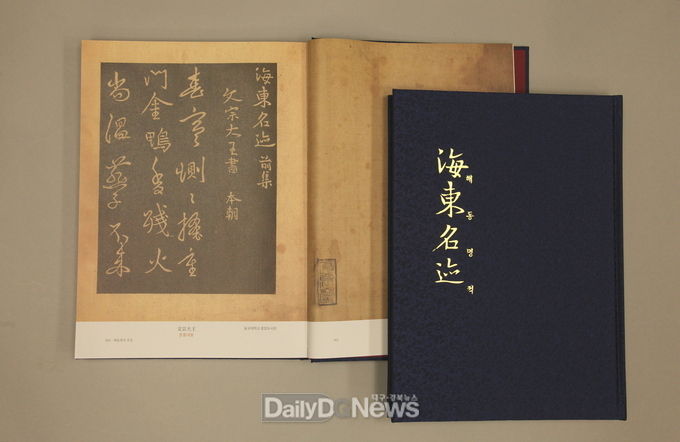 海東名迹 前集
文宗大王書 本朝
春寒惻〻掩重
門金鴨香殘火
尚溫燕子不來
文宗大王
문종대왕
海東名迹
해동명적
대구·경북뉴스
DailyDGNews